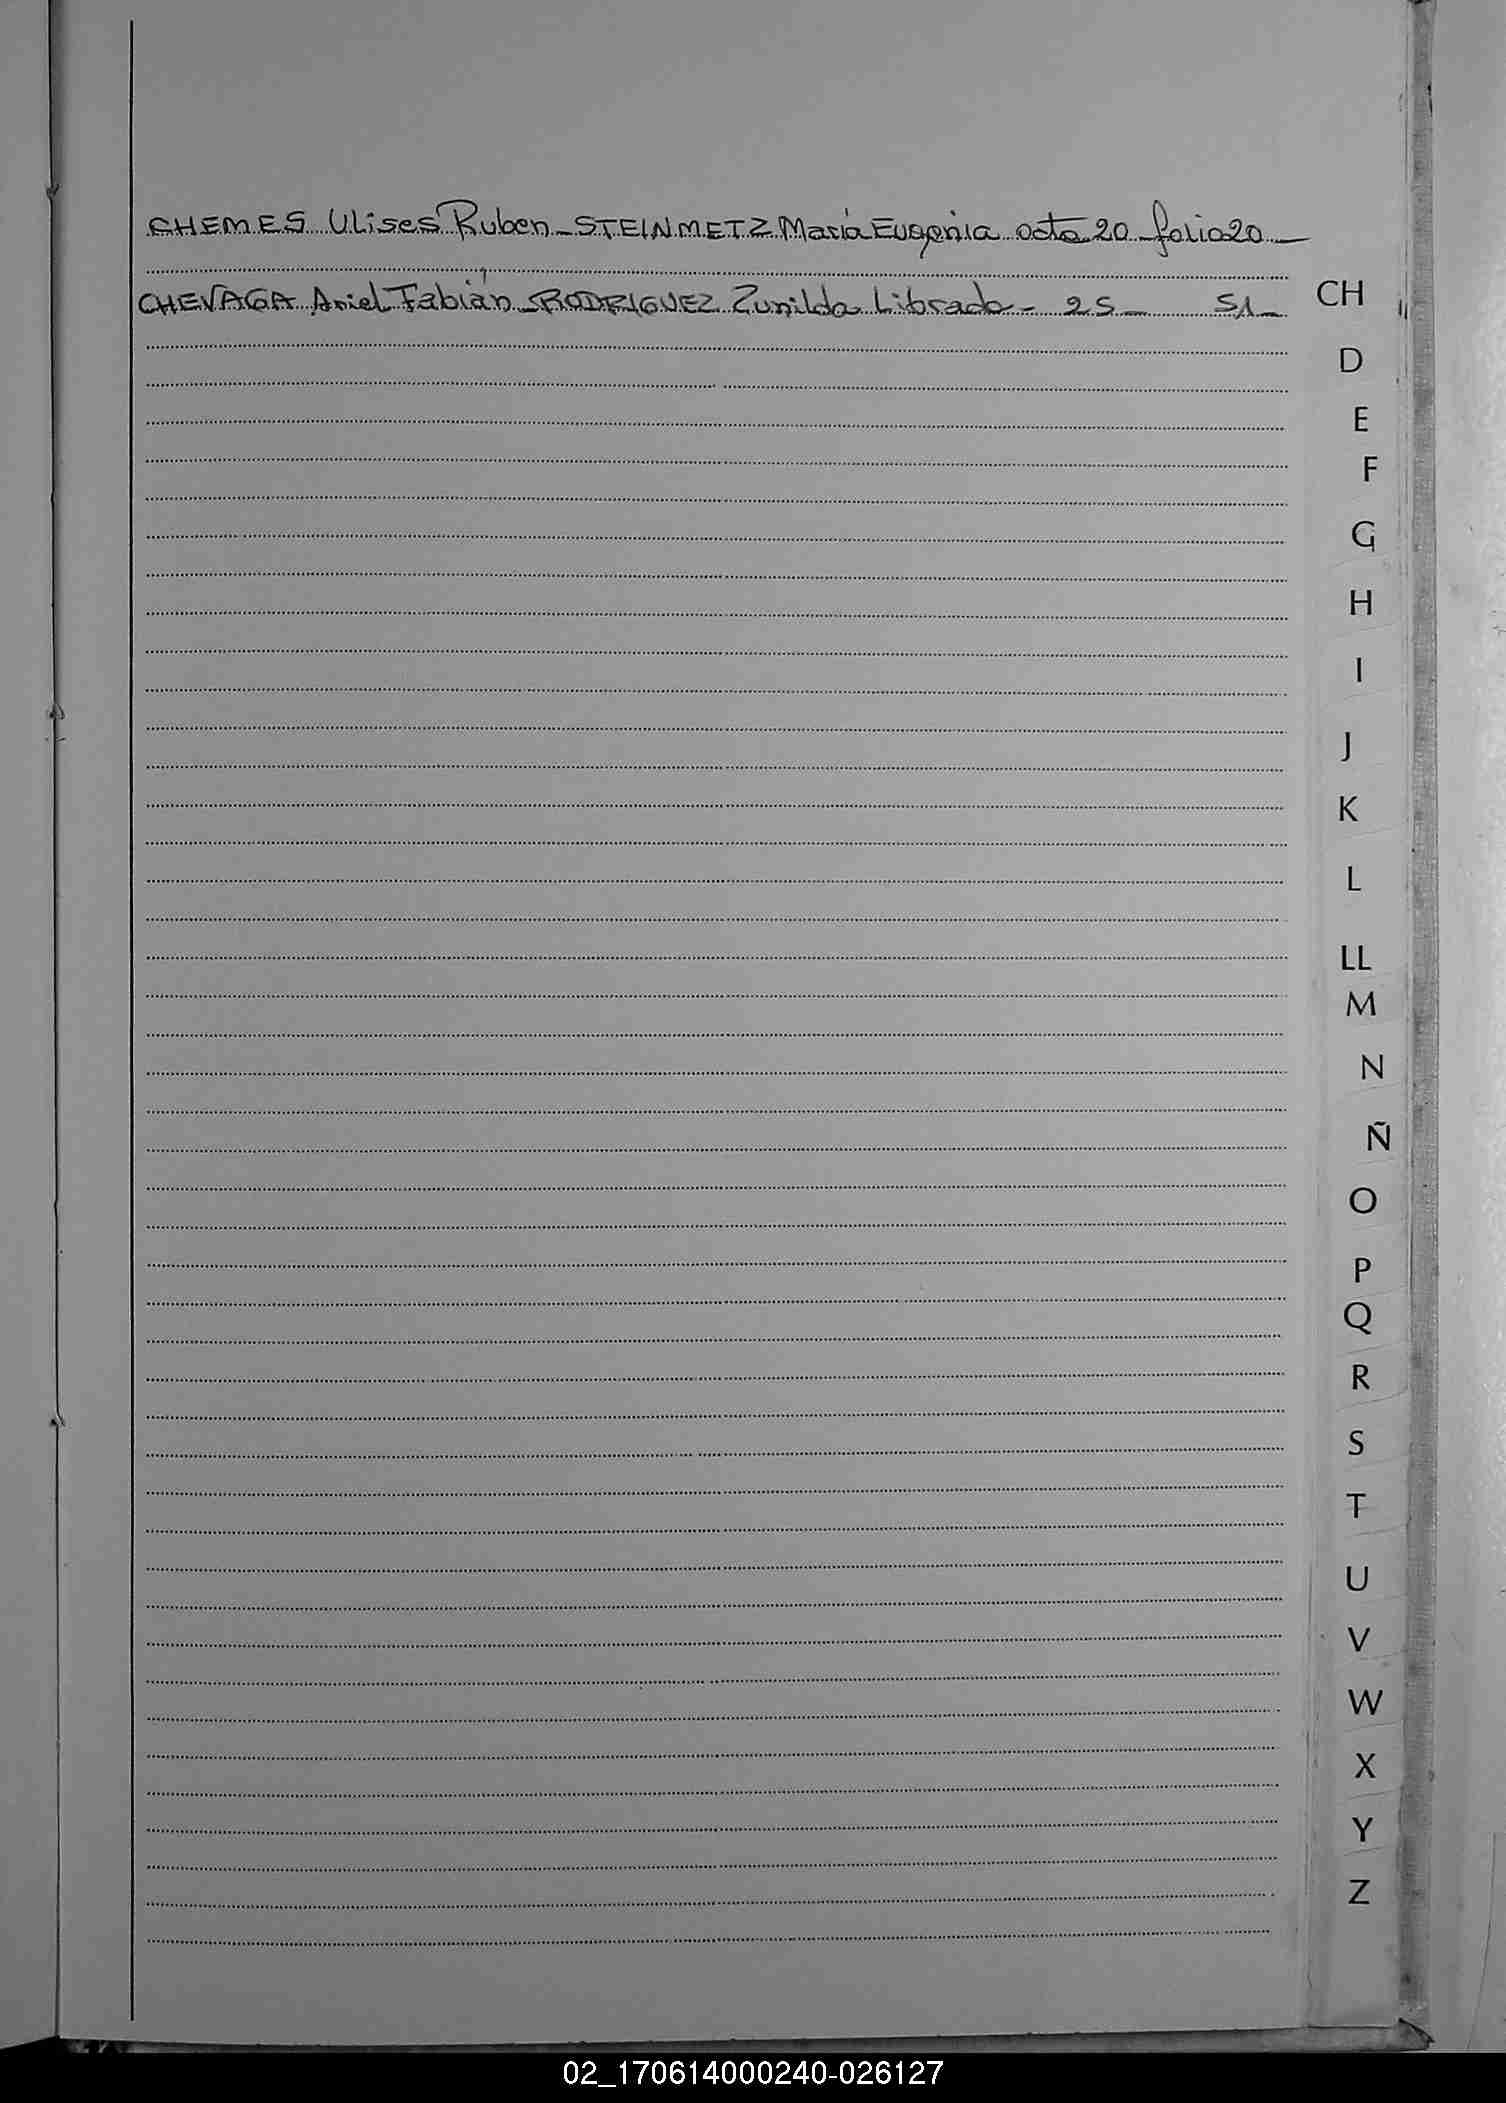 CHEMES Ulises Ruben - STEINMETZ María Eugenia acta 20 folio 20 -
CHEVAGA Ariel Fabián - RODRIGUEZ Zunilda Librada - 25 - 51 -
CH
D
E
F
G
H
I
J
K
L
LL
M
N
Ñ
O
P
Q
R
S
T
U
V
W
X
Y
Z
02_170614000240-026127